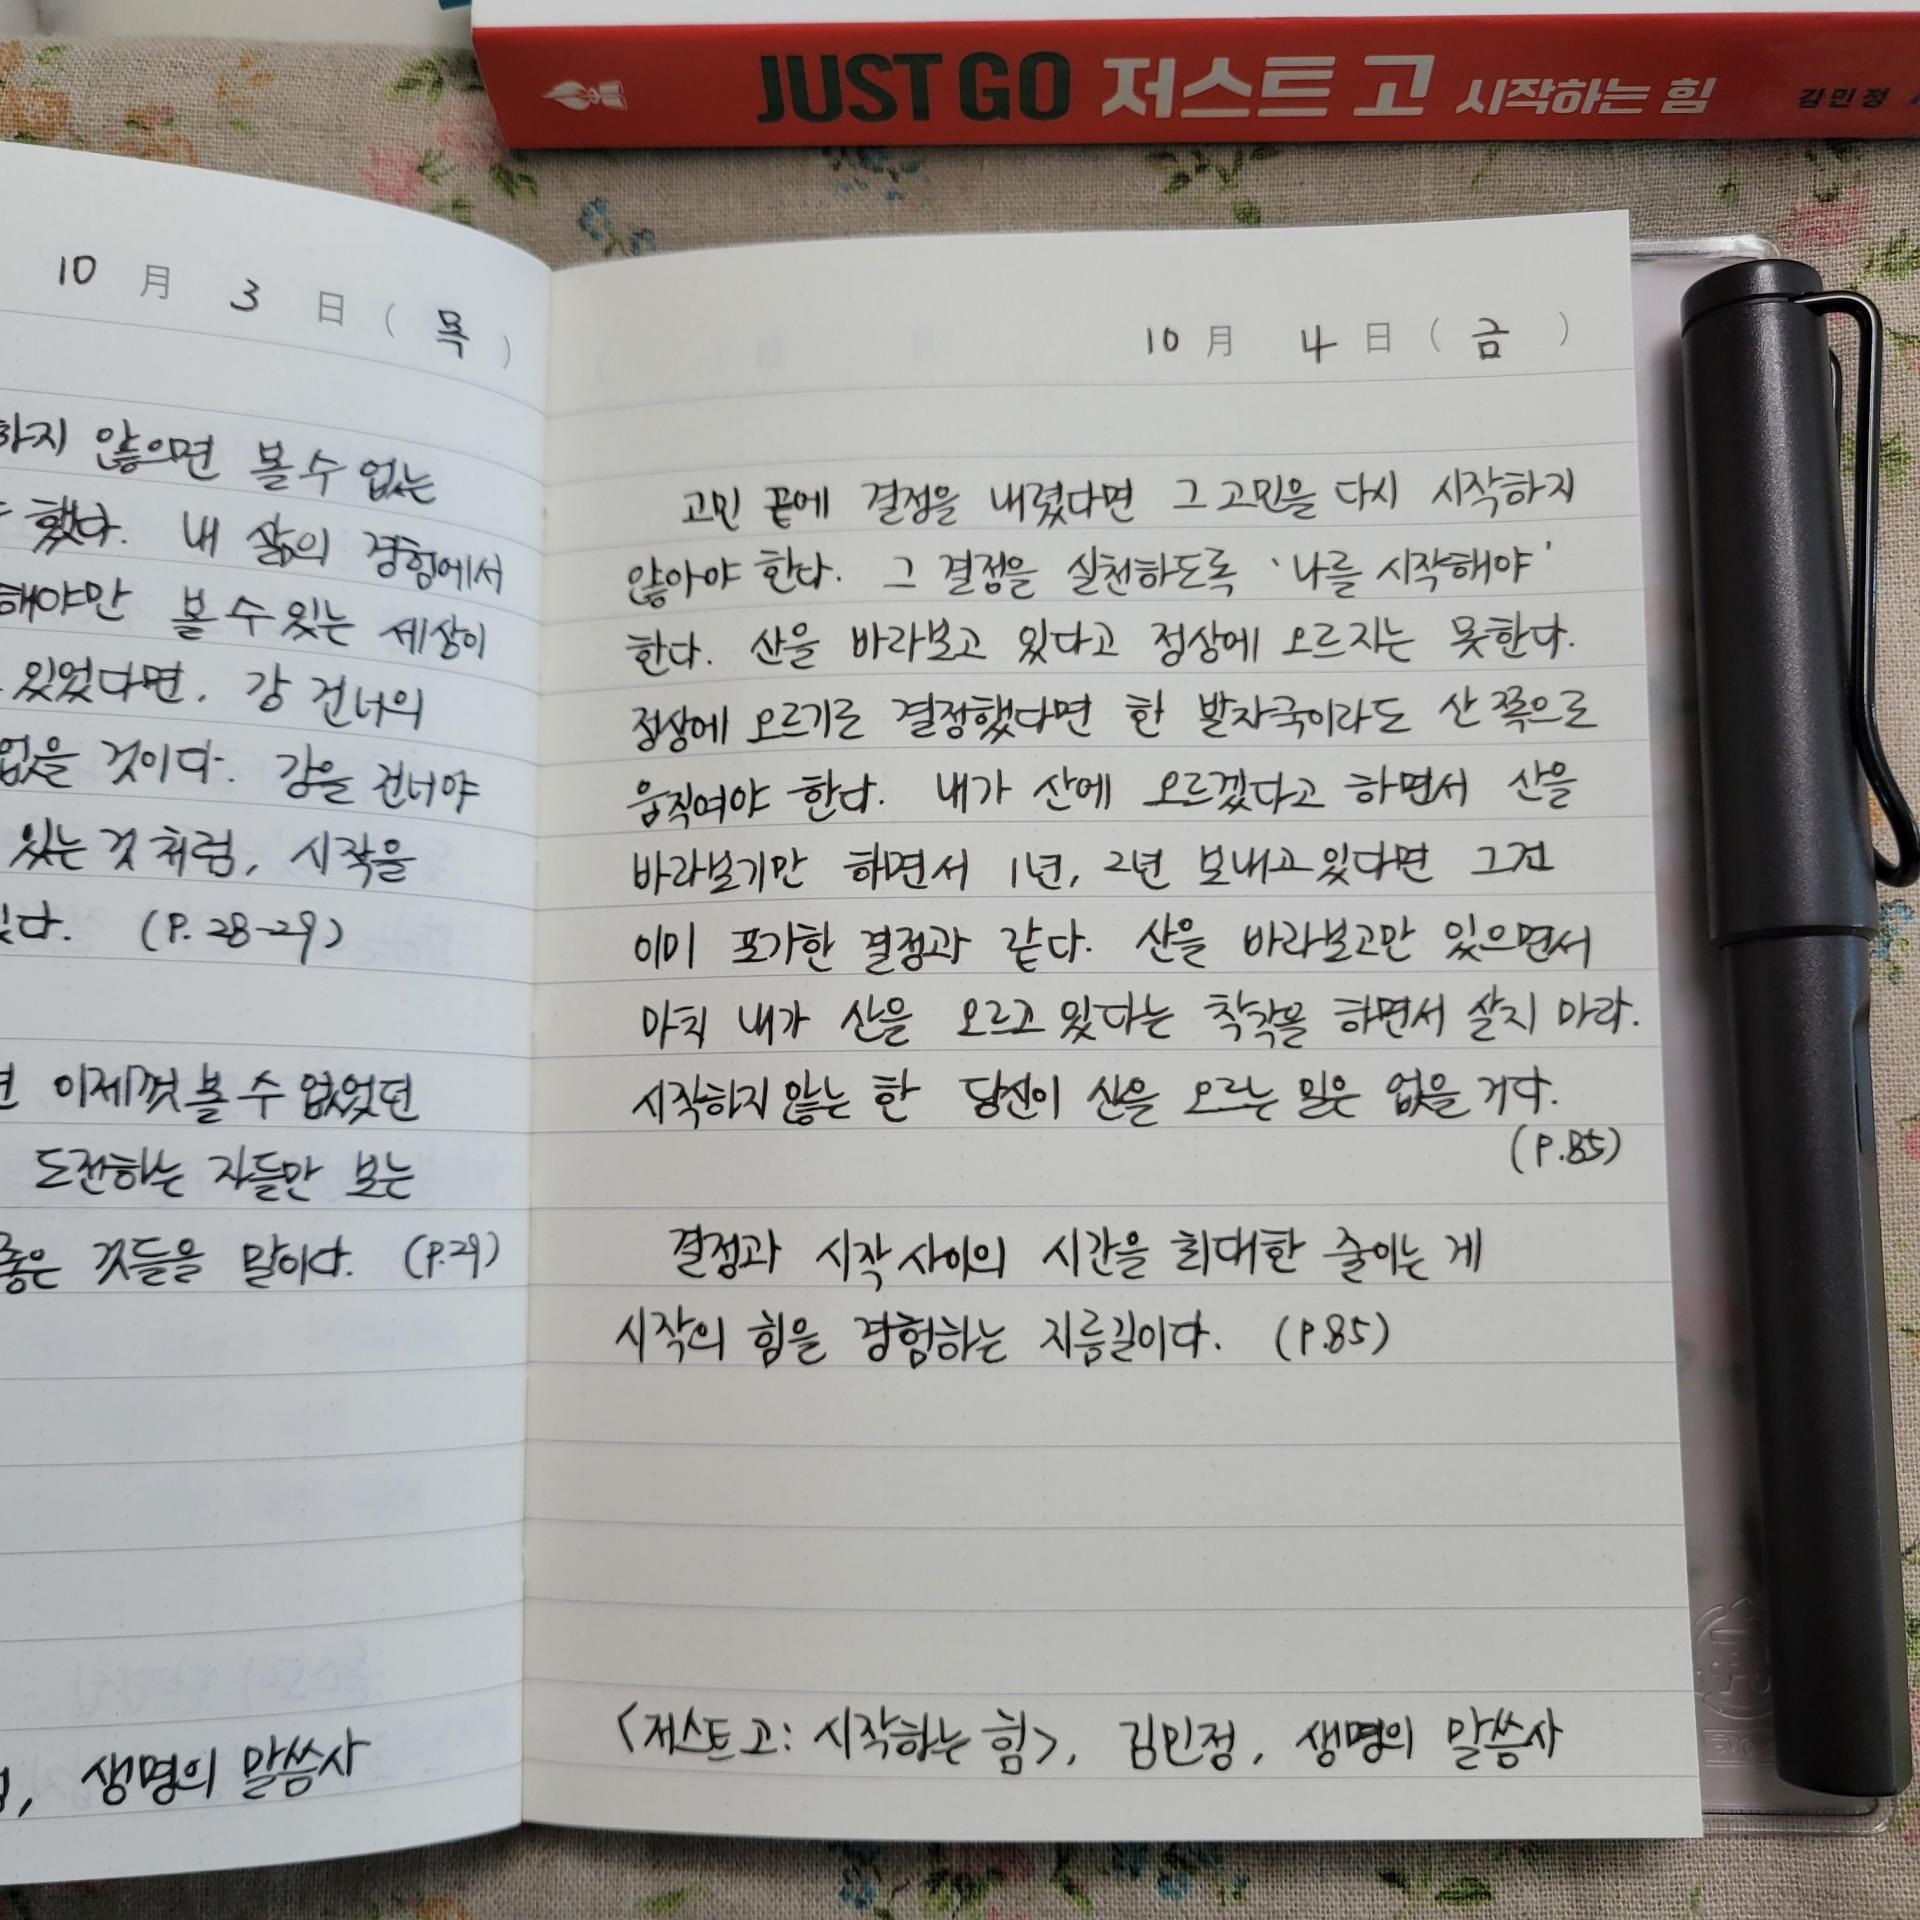 JUST GO 저스트 고 시작하는 힘 김민정
10 月 3 日 ( 목 )
하지 않으면 볼 수 없는
했다. 내 삶의 경험에서
해야만 볼 수 있는 세상이
있었다면, 강 건너의
없을 것이다. 강을 건너야
있는 것처럼, 시작을
있다. (P. 28-29)
이제껏 볼 수 없었던
도전하는 자들만 보는
좋은 것들을 말이다. (P.29)
, 생명의 말씀사
10 月 4 日 ( 금 )
고민 끝에 결정을 내렸다면 그 고민을 다시 시작하지
않아야 한다. 그 결정을 실천하도록 '나를 시작해야'
한다. 산을 바라보고 있다고 정상에 오르지는 못한다.
정상에 오르기로 결정했다면 한 발자국이라도 산 쪽으로
움직여야 한다. 내가 산에 오르겠다고 하면서 산을
바라보기만 하면서 1년, 2년 보내고 있다면 그건
이미 포기한 결정과 같다. 산을 바라보고만 있으면서
마치 내가 산을 오르고 있다는 착각을 하면서 살지 마라.
시작하지 않는 한 당신이 산을 오르는 일은 없을 거다.
(P.85)
결정과 시작 사이의 시간을 최대한 줄이는 게
시작의 힘을 경험하는 지름길이다. (P.85)
<저스트 고: 시작하는 힘>, 김민정, 생명의 말씀사